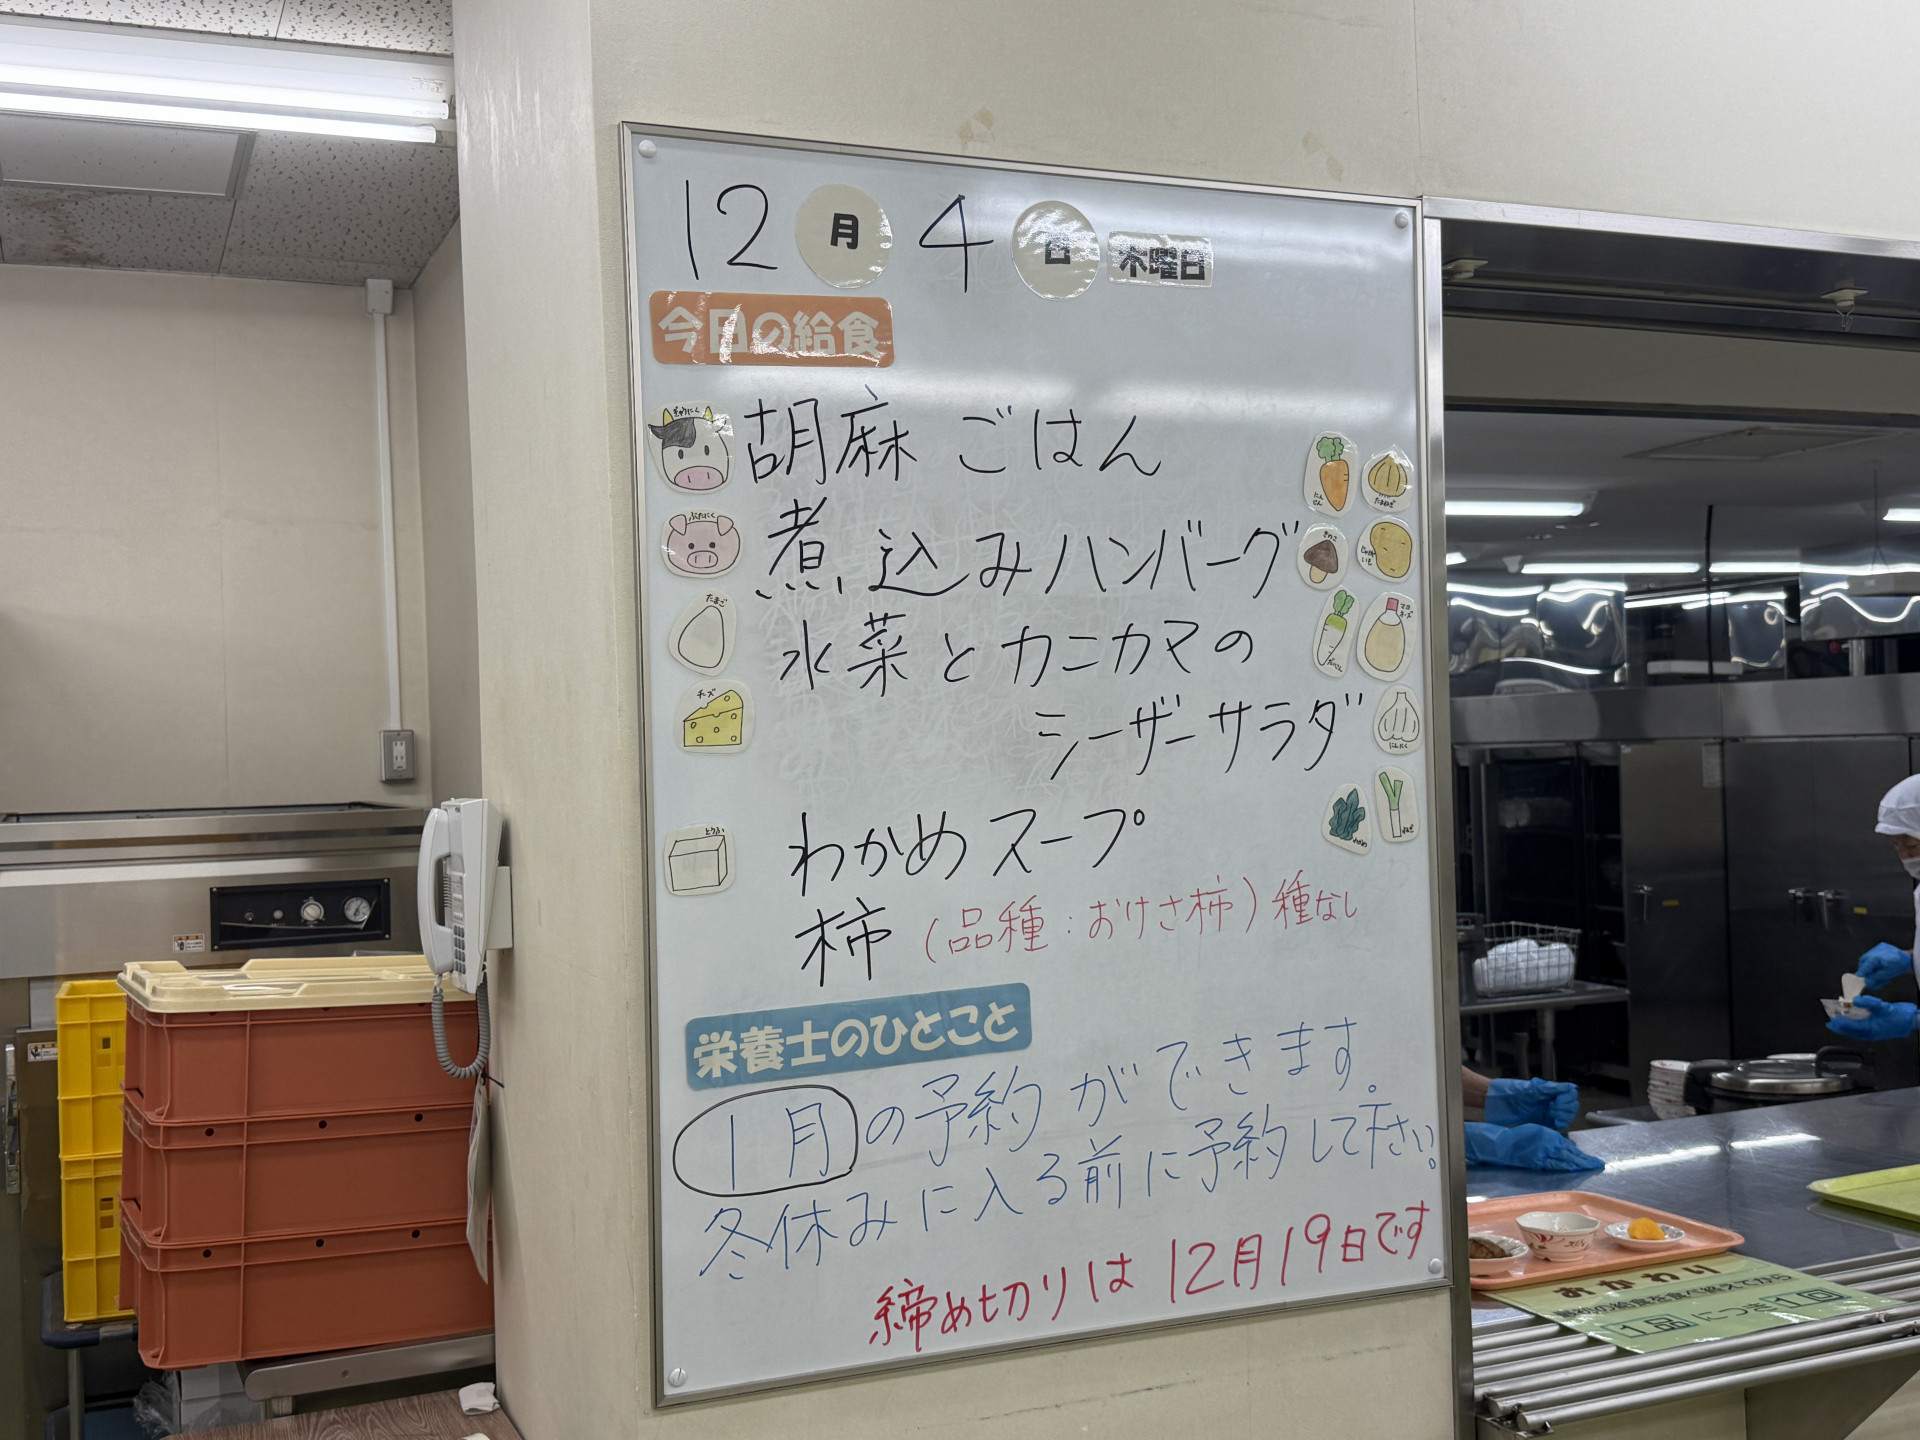 12月4日 木曜日
今日の給食
ぎゅうにく
胡麻ごはん
にんじん
たまねぎ
ぶたにく
煮込みハンバーグ
きのこ
じゃがいも
たまご
水菜とカニカマの
だいこん
マヨネーズ
チーズ
シーザーサラダ
にんにく
とうふ
わかめスープ
わかめ
ねぎ
柿(品種:おけさ柿)種なし
栄養士のひとこと
1月の予約ができます。
冬休みに入る前に予約して下さい。
締め切りは12月19日です
おかわり
最初の給食を食べ終えてから
1品につき1回